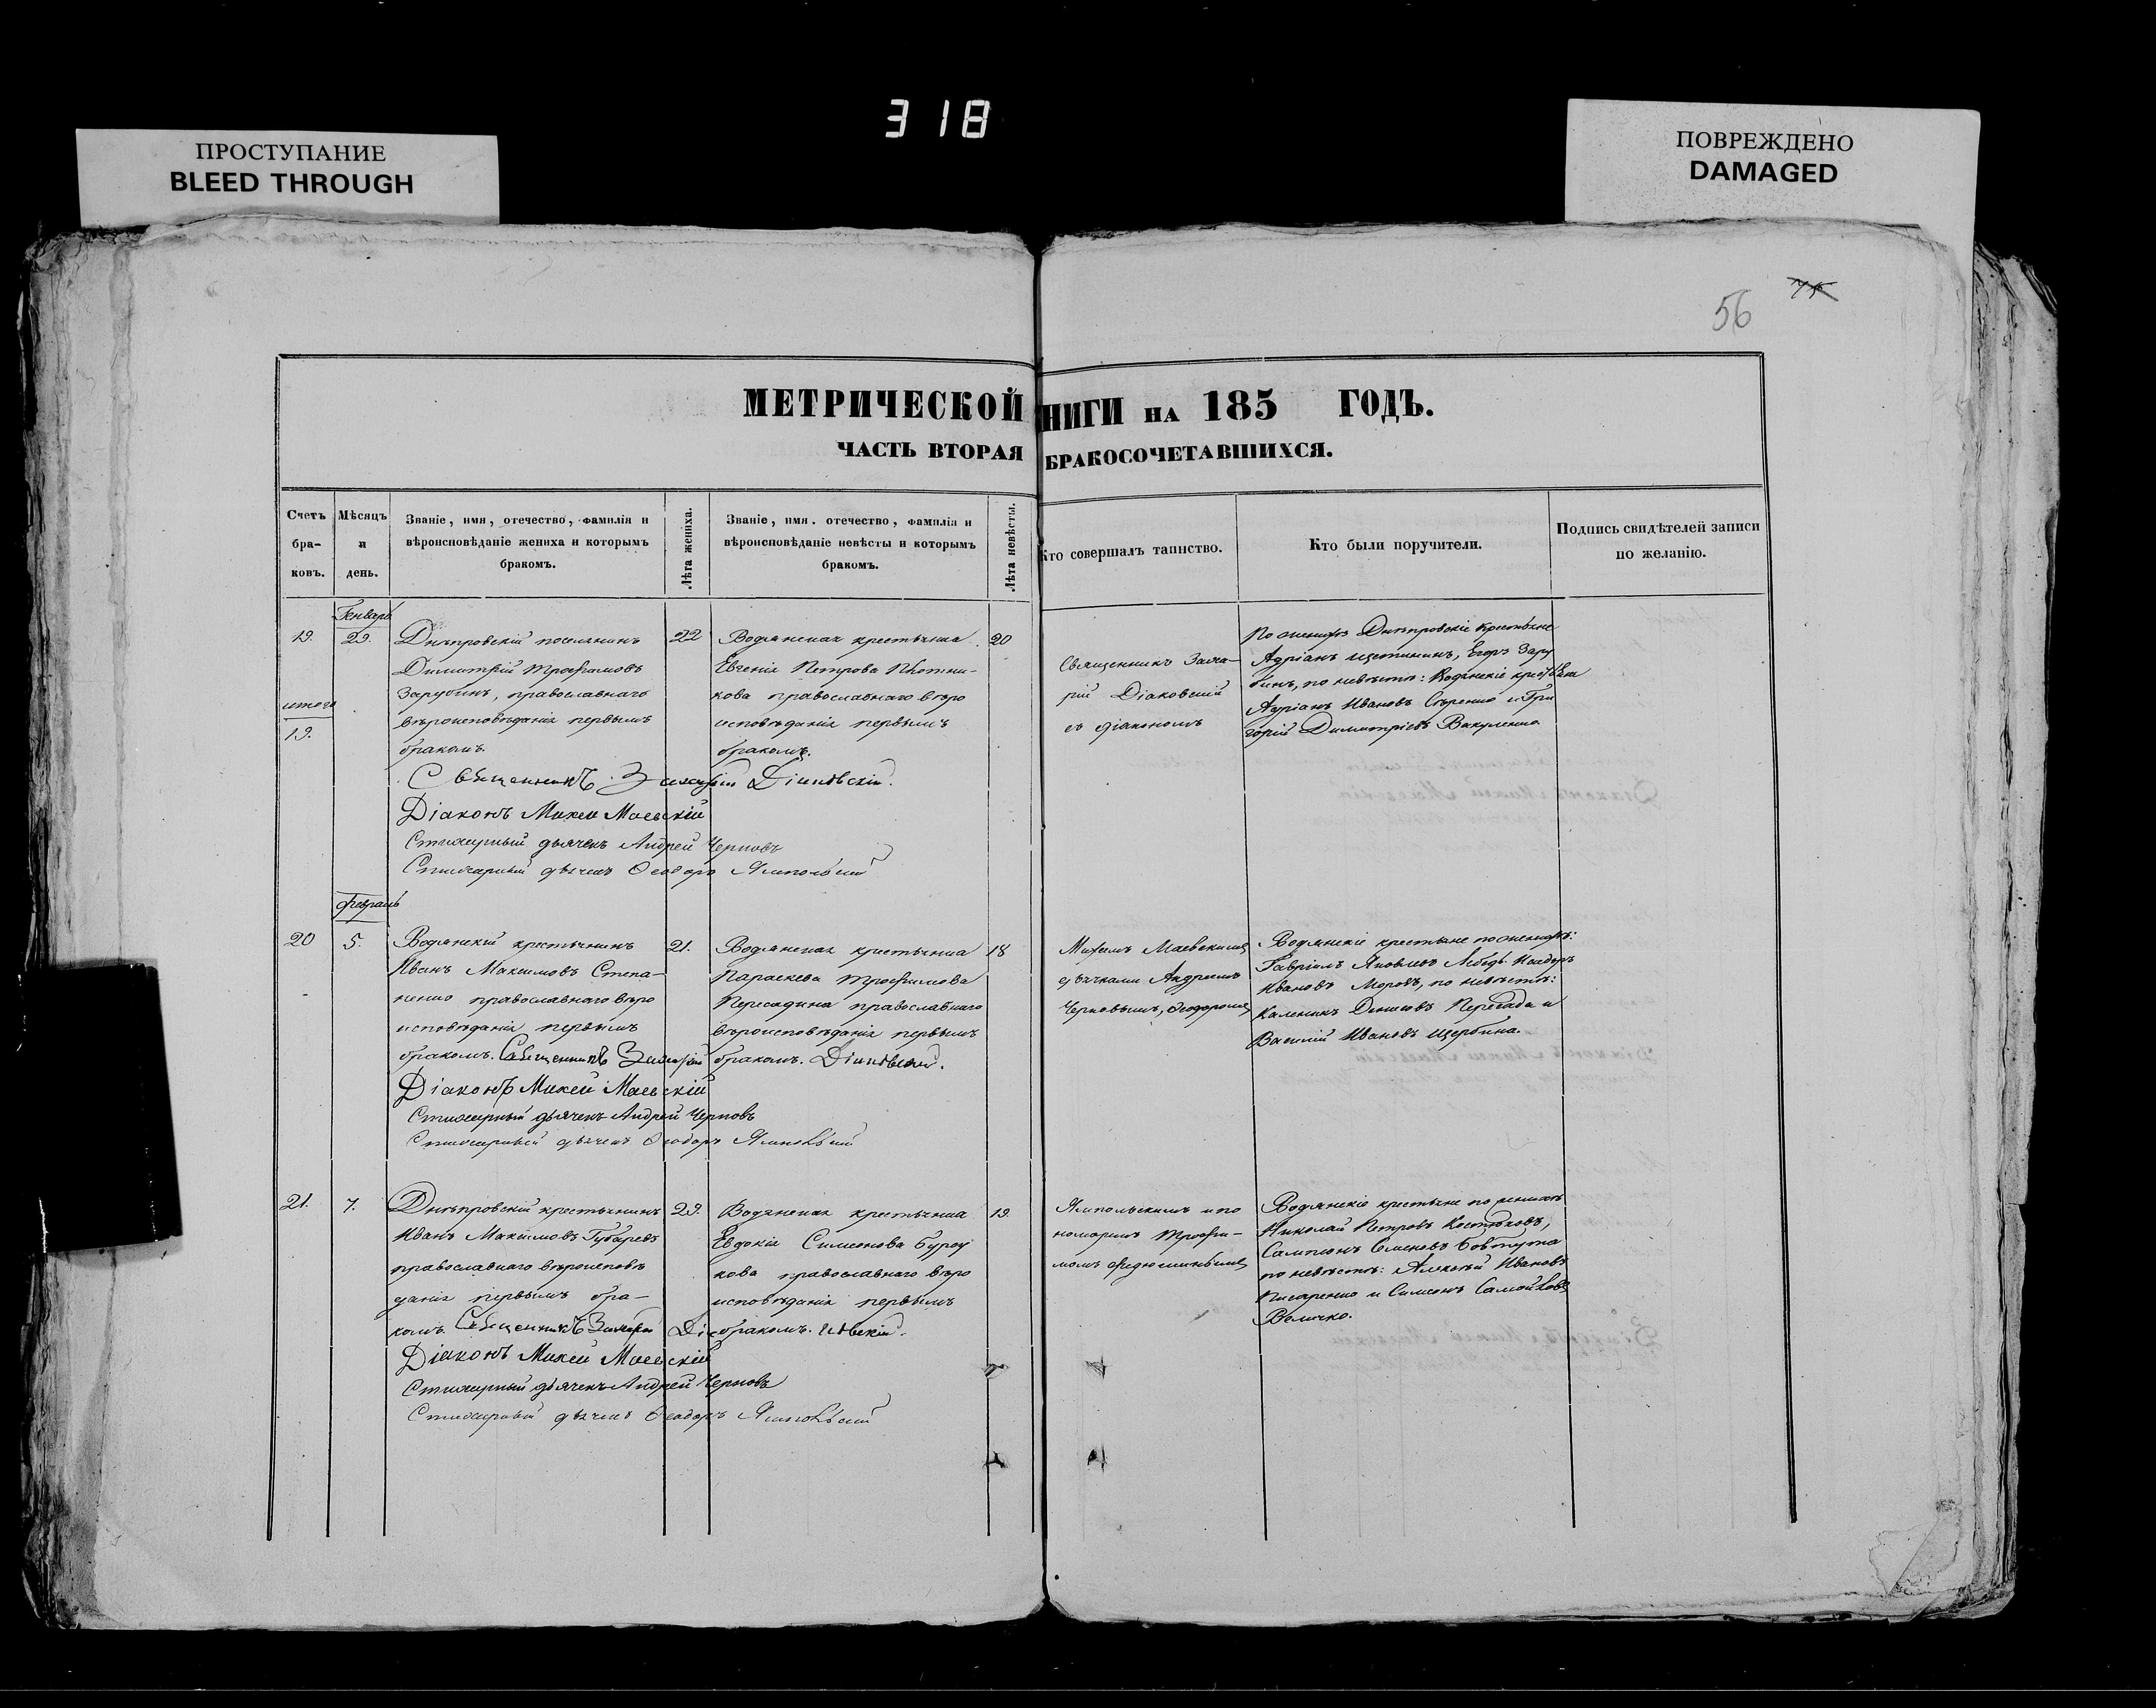 318
ПРОСТУПАНИЕ
BLEED THROUGH
ПОВРЕЖДЕНО
DAMAGED
56
МЕТРИЧЕСКОЙ НИГИ НА 185 ГОДЪ.
ЧАСТЬ ВТОРАЯ БРАКОСОЧЕТАВШИХСЯ.
Счетъ бра-ковъ.
Мѣсяцъ и день.
Званіе, имя, отечество, фамилія и
вѣроисповѣданіе жениха и которымъ
бракомъ.
Лѣта жениха.
Званіе, имя. отечество, фамилія и
вѣроисповѣданіе невѣсты и которымъ
бракомъ.
Лѣта невѣсты.
Кто совершалъ таинство.
Кто были поручители.
Подпись свидѣтелей записи
по желанію.
Генварь
19.
29.
Днѣпровскій поселянинъ
Димитрій Трофимовъ
Зарубинъ, православнаго
вѣроисповѣданія первымъ
бракомъ.
22
Водянская крестьянка
Евгенія Петрова Плотни-
кова православнаго вѣро
исповѣданія первымъ
бракомъ.
20
Священникъ Заха-
рій Діаковскій
съ діакономъ
По женихѣ Днѣпровскіе крестьяне
Адріанъ Щетининъ, Егоръ Зару
бинъ, по невѣстѣ: Водянскіе крестьяне
Адріанъ Ивановъ Сѣренко и Гри
горій Димитріевъ Вакуленко
итого
19.
Священникъ Захарій Діаковскій.
Діаконъ Михей Маевскій
Стихарный дьячекъ Андрей Черновъ
Стихарный дьячекъ Ѳеодоръ Ямпольскій
Февраль
20
5.
Водянскій крестьянинъ
Иванъ Максимовъ Степа-
ненко православнаго вѣро
исповѣданія первымъ
бракомъ.
21.
Водянская крестьянка
Параскева Трофимова
Пересадина православнаго
вѣроисповѣданія первымъ
бракомъ.
18
Михеемъ Маевскимъ
дьячками Андреемъ
Черновымъ, Ѳеодоромъ
Водянскіе крестьяне по женихѣ:
Гавріилъ Яковлевъ Лебедь
Ивановъ Морозъ, по невѣстѣ:
Каленикъ Денисовъ Пересада и
Василій Ивановъ Щербина.
Священникъ Захарій Діаковскій.
Діаконъ Михей Маевскій
Стихарный дьячекъ Андрей Черновъ
Стихарный дьячекъ Ѳеодоръ Ямпольскій
21.
7.
Днѣпровскій крестьянинъ
Иванъ Максимовъ Губаревъ
православнаго вѣроисповѣ
данія первымъ бра-
комъ.
29.
Водянская крестьянка
Евдокія Симеонова
кова православнаго вѣро
исповѣданія первымъ
бракомъ.
19
Ямпольскимъ и по
номаремъ Трофи-
момъ
Водянскіе крестьяне по женихѣ
Николай Петровъ Костюковъ,
Сампсонъ Семеновъ
по невѣстѣ: Алексѣй Ивановъ
Писаренко и Симеонъ Самойловъ
Величко.
Священникъ Захарій Діаковскій.
Діаконъ Михей Маевскій
Стихарный дьячекъ Андрей Черновъ
Стихарный дьячекъ Ѳеодоръ Ямпольскій